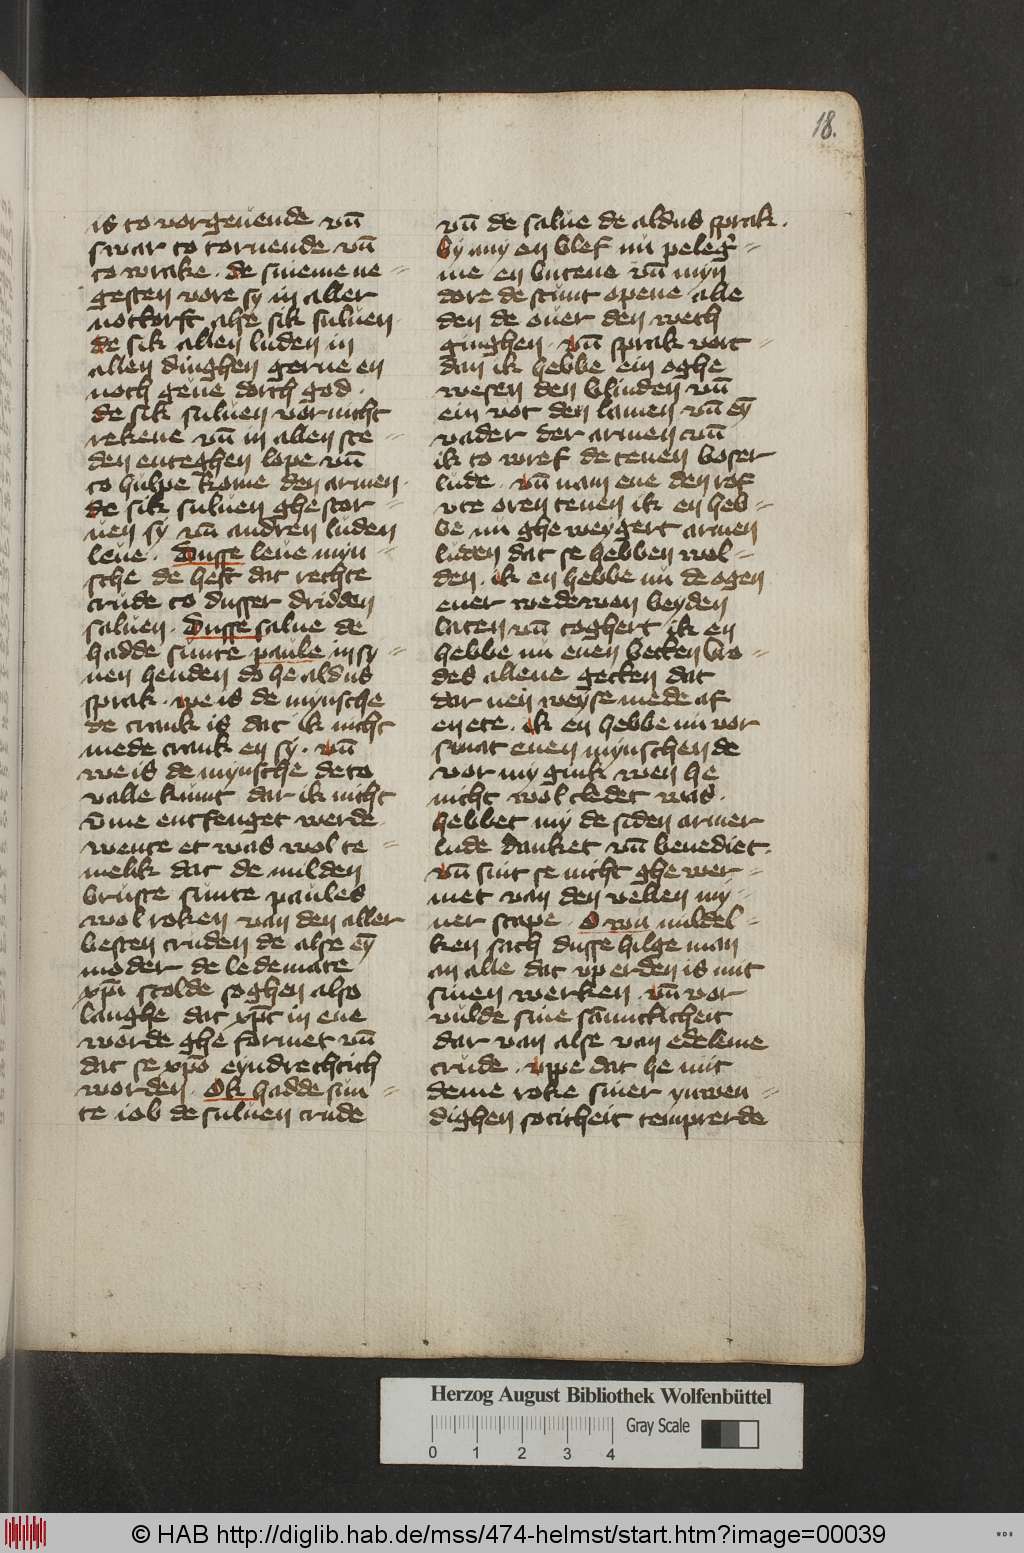 18.
is to vorgeuende vn̄
swar to toruende vn̄
to wrake · de sineme ne =
gesten vore sy in aller
notkorft alse sik suluen
de sik allen luden in
allen dinghen gerne en
noch geue dorch god ·
de sik suluen vornicht
rekene vn̄ in allen ste =
den enteghen lope vn̄
to hulpe kome den armen ·
de sik suluen ghestor =
uen sy vn̄ andren luden
leue · Dusse leue myn =
sche de heft dat rechte
crude to dusser dridden
saluen · Dusse salue de
hadde sunte paule in sy =
nen henden do he aldus
sprak · we is de mynsche
de crank is dat ik nicht
mede crank en sy · vn̄
we is de mynsche de to
valle kumt dar ik nicht
v̄me entfenget werde
wente et was wol te =
melik dat de milden
bruste sunte paules
wol roken van den aller
besten cruden de alse eȳ
moder de ledemate
xp̄i scolde soghen also
langhe dat xp̄c in ene
worde ghe formet vn̄
dat se xp̄o eyndrechtich
worden · Ok hadde sun =
te iob de suluen crude
vn̄ de salue de aldus sprak ·
by my en blef nu peleg̉ =
me en butene vn̄ myn
dore de stunt opene alle
den de ouer den wech
ginghen · vn̄ sprak vort =
dan ik hebbe ein oghe
wesen den blinden vn̄
ein vot den lamen vn̄ eȳ
vader der armen vn̄
ik to wref de tenen boser
lude · vn̄ nam ene den rof
vte oren tenen ik en heb =
be nu ghe weygert armen
luden dat se hebben wol =
den · ik en hebbe nu de ogen
ener wedewen beyden
laten vn̄ toghert ik en
hebbe nu enen becken bro =
des allene gecten dat
dar nein weyse mede af
en ete · ik en hebbe nu vor
smat enen mynschen de
vor my gink wen he
nicht wol cledet was ·
hebbet my de siden armer
lude danket vn̄ benediet ·
vn̄ sint se nicht ghe wer =
met van den vellen my =
ner scape · O wu mildel =
ken sach dusse hilge man
an alle dat vp erden is mit
sinen werken · vn̄ vor
vulde sine sāmticheit
dar van alse van edeleme
crude · vppe dat he mit
deme roke siner ynwen =
dighen soticheit temprerde
Herzog August Bibliothek Wolfenbüttel
Gray Scale
0 1 2 3 4
© HAB http://diglib.hab.de/mss/474-helmst/start.htm?image=00039